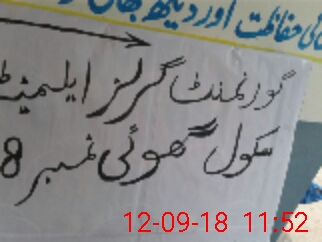 حفاظت اور دیکھ بھال
گورنمنٹ گرلز ایلیمنٹ
سکول گھوئی نمبر 8
12-09-18 11:52